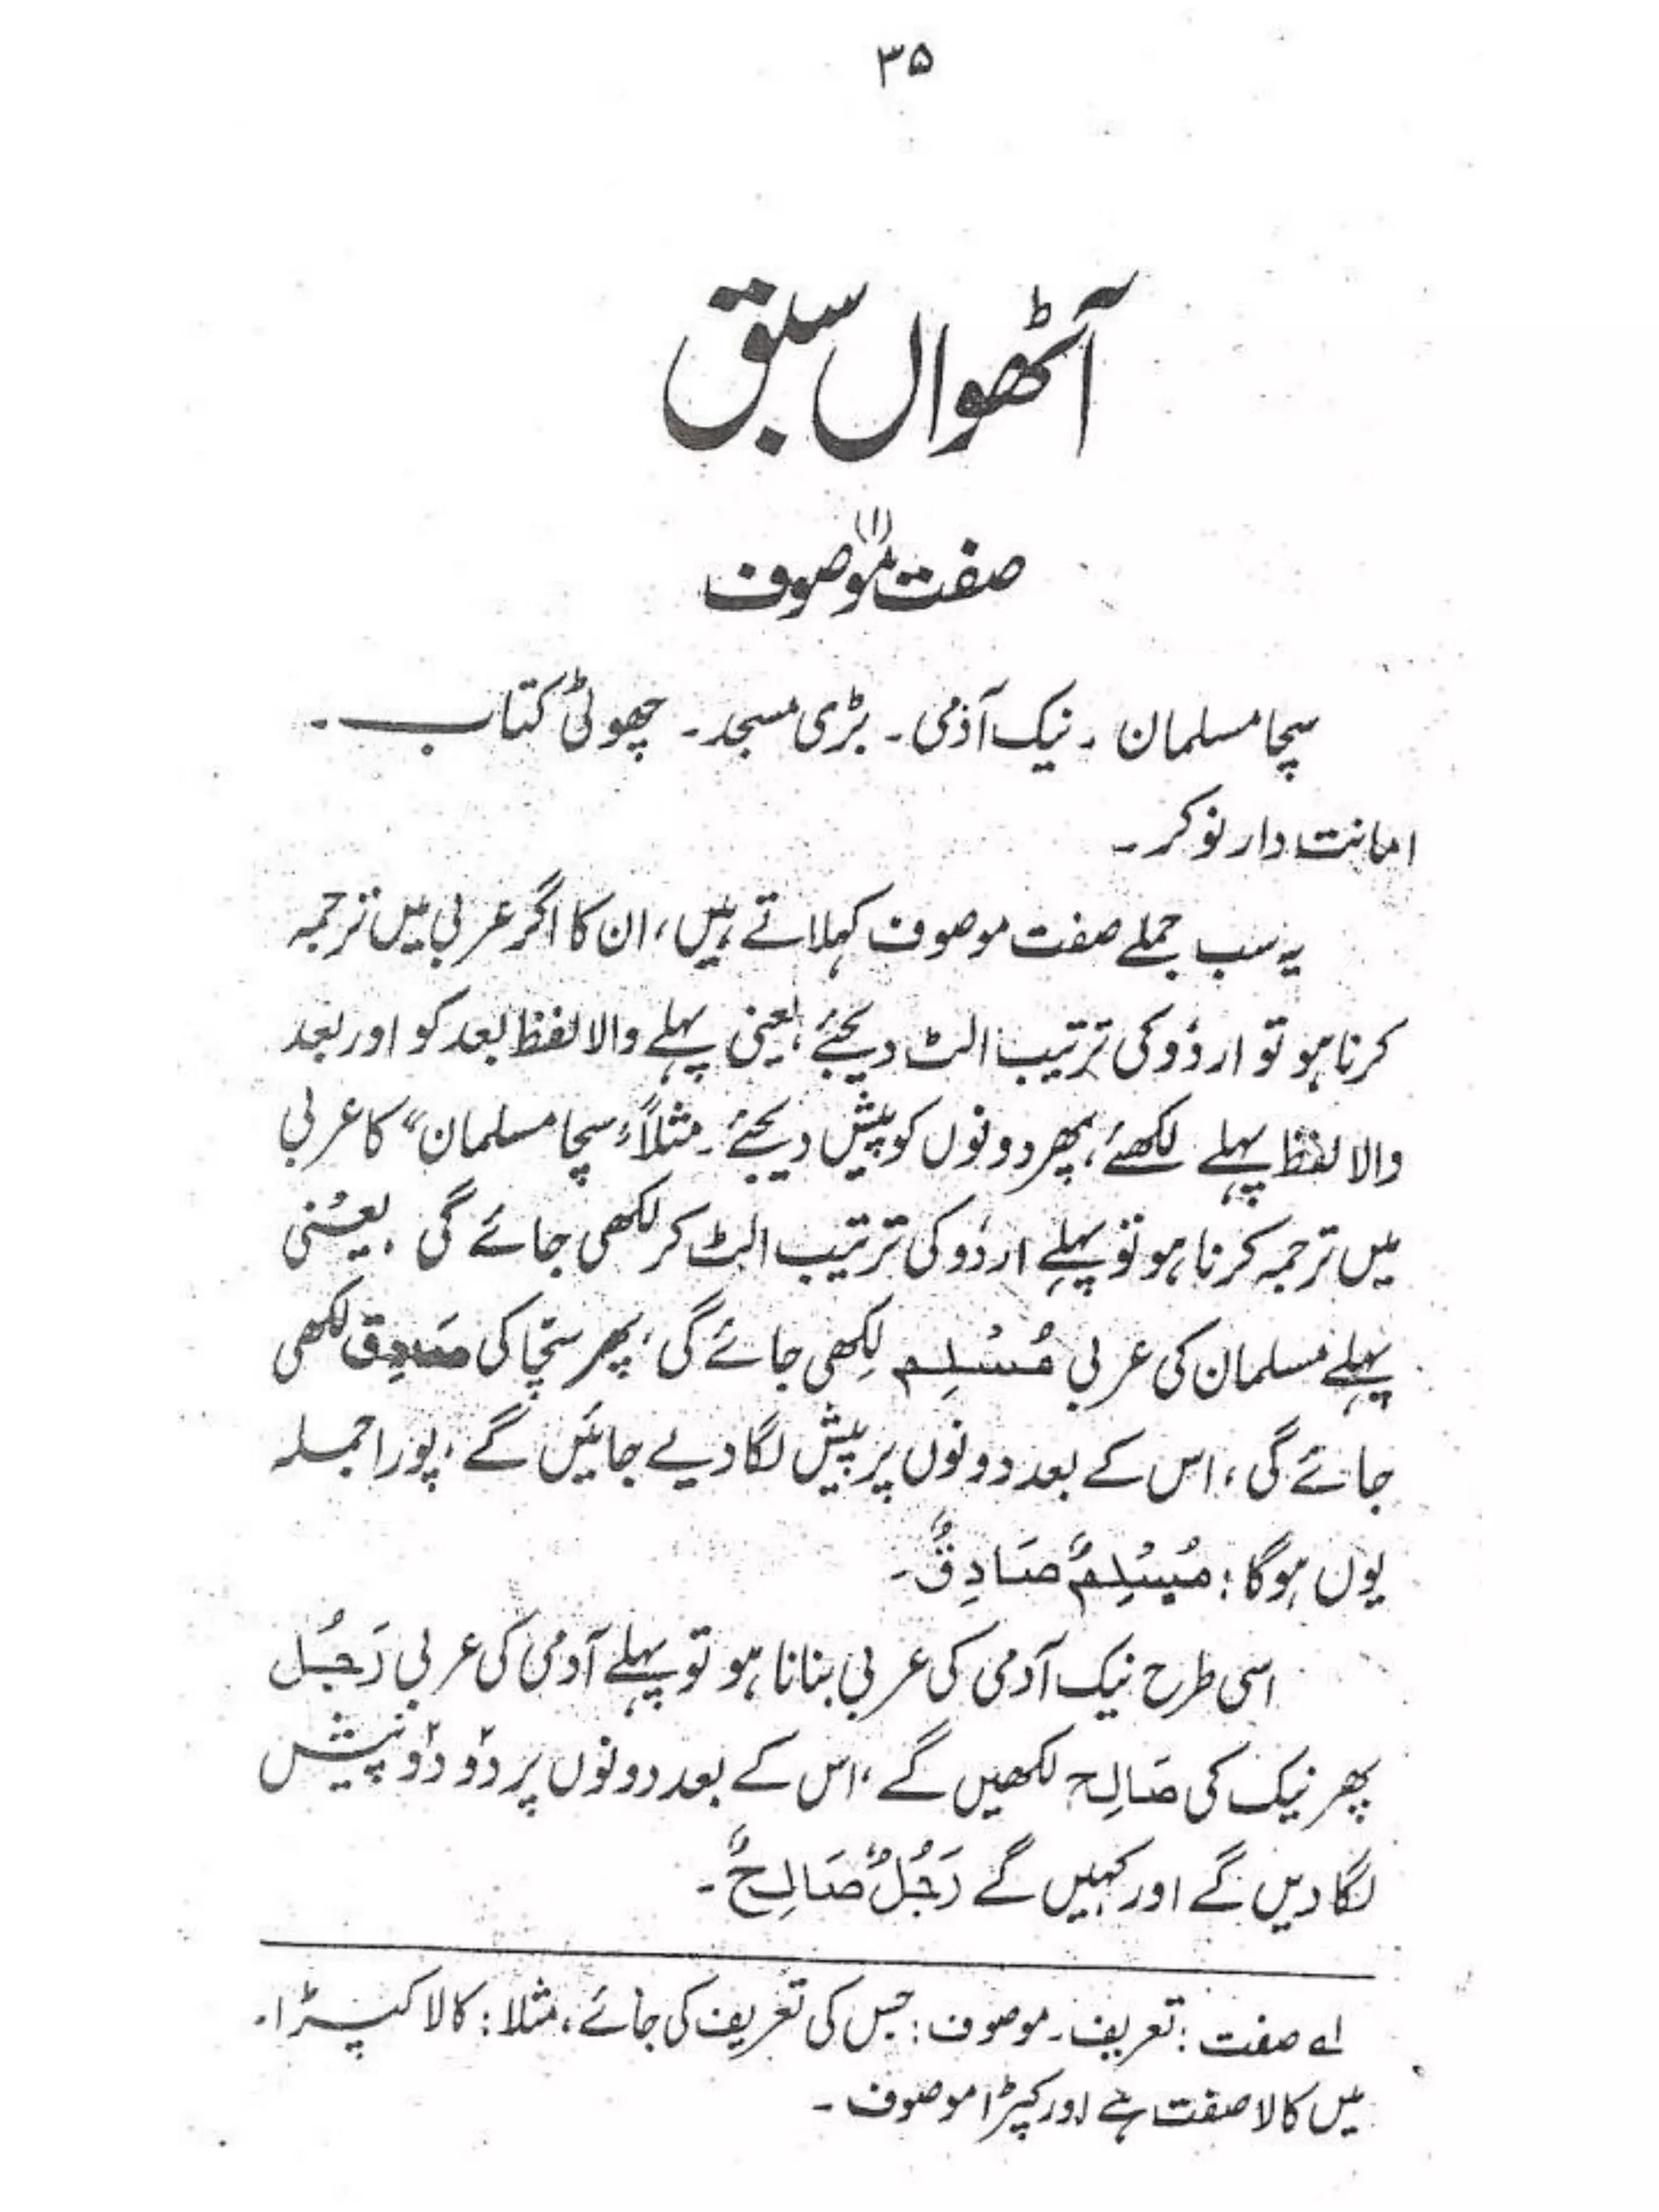 ۳۵
آٹھواں سبق
(۱)
صفت موصوف
سچا مسلمان ۔ نیک آدمی ۔ بڑی مسجد ۔ چھوٹی کتاب ۔
امانت دار نوکر ۔
یہ سب جملے صفت موصوف کہلاتے ہیں، ان کا اگر عربی میں ترجمہ
کرنا ہو تو اردُو کی ترتیب الٹ دیجئے، یعنی پہلے والا لفظ بعد کو اور بعد
والا لفظ پہلے لکھئے، پھر دونوں کو پیش دیجئے۔ مثلاً ”سچا مسلمان“ کا عربی
میں ترجمہ کرنا ہو تو پہلے اردُو کی ترتیب الٹ کر لکھی جائے گی، یعنی
پہلے مسلمان کی عربی مُسْلِم لکھی جائے گی، پھر سچّا کی صَادِق لکھی
جائے گی، اس کے بعد دونوں پر پیش لگا دیے جائیں گے، پورا جملہ
یوں ہوگا: مُسْلِمٌ صَادِقٌ۔
اسی طرح نیک آدمی کی عربی بنانا ہو تو پہلے آدمی کی عربی رَجُل
پھر نیک کی صَالِح لکھیں گے، اس کے بعد دونوں پر دو دو پیش
لگا دیں گے اور کہیں گے رَجُلٌ صَالِحٌ۔
لے صفت: تعریف۔ موصوف: جس کی تعریف کی جائے، مثلا: کالا کپڑا۔
میں کالا صفت ہے اور کپڑا موصوف ۔